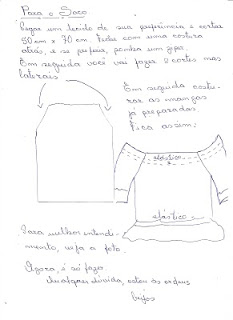 Para o Saco
Pegar um tecido de sua preferência e cortar
50 cm x 70 cm. Feche com uma costura
atrás, e se prefira, ponha um ziper.
Em seguida você vai fazer 2 cortes nas
laterais
Em seguida costu-
rar as mangas
já preparadas.
Fica assim:
elástico
elástico
Para melhor entendi-
mento, veja a foto.
Agora, é só fazer
qualquer dúvida, estou às ordens
beijos